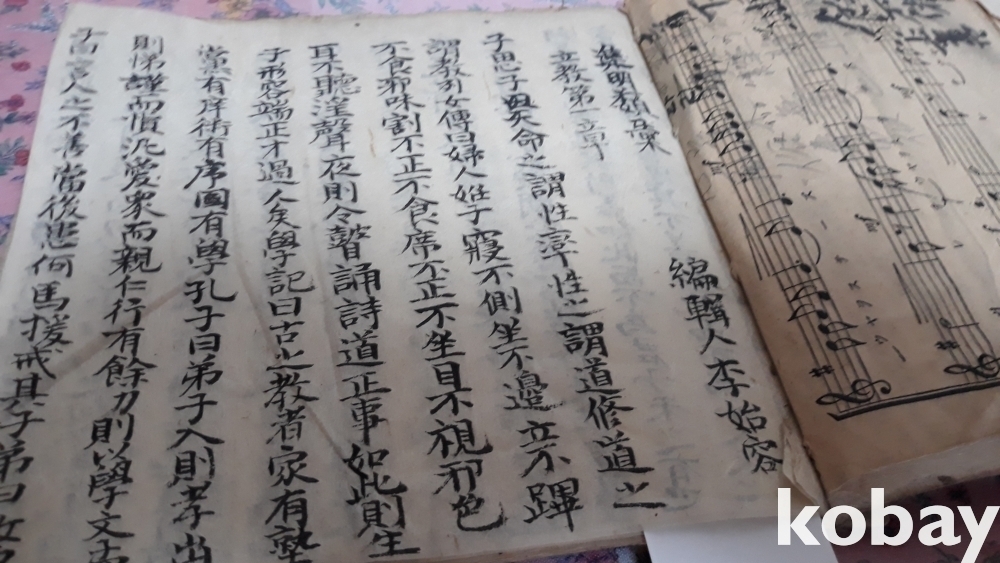 編輯人李始容
立教第一章
子思子曰天命之謂性率性之謂道修道之
謂教列女傳曰婦人姙子寢不側坐不邊立不蹕
不食邪味割不正不食席不正不坐目不視邪色
耳不聽淫聲夜則令瞽誦詩道正事如此則生
子形容端正才過人矣學記曰古之教者家有塾
黨有庠術有序國有學孔子曰弟子入則孝出
則悌謹而慎汎愛衆而親仁行有餘力則以學文孟
子曰言人之不善當後患何馬援戒其子弟曰汝
kobay